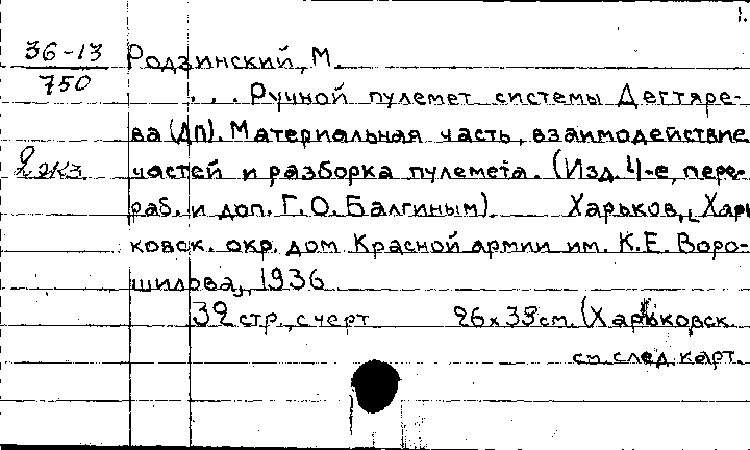 1.
36-13
750
Родзинский, М.
... Ручной пулемет системы Дегтяре-
ва (ДП). Материальная часть, взаимодействие
2 экз
частей и разборка пулемета. (Изд. 4-е, пере-
раб. и доп. Г.О. Балгиным). Харьков, Харь
ковск. окр. дом Красной армии им. К.Е. Воро-
шилова, 1936.
32 стр., с черт 26х38 см. (Харьковск
см. след. карт.